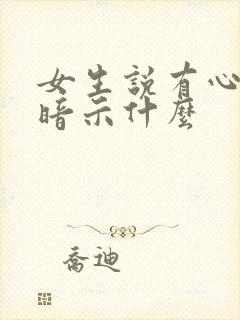 女生説有心
暗示什麽
喬迪